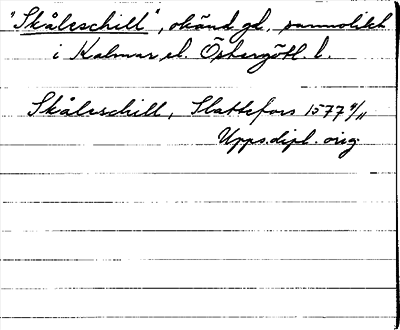 "Skåleschill", okänd gd, sannolikt
i Kalmar el. Östergötl. l.
Skåleschill, Slattefors 1577 9/11
Upps.dipl. orig